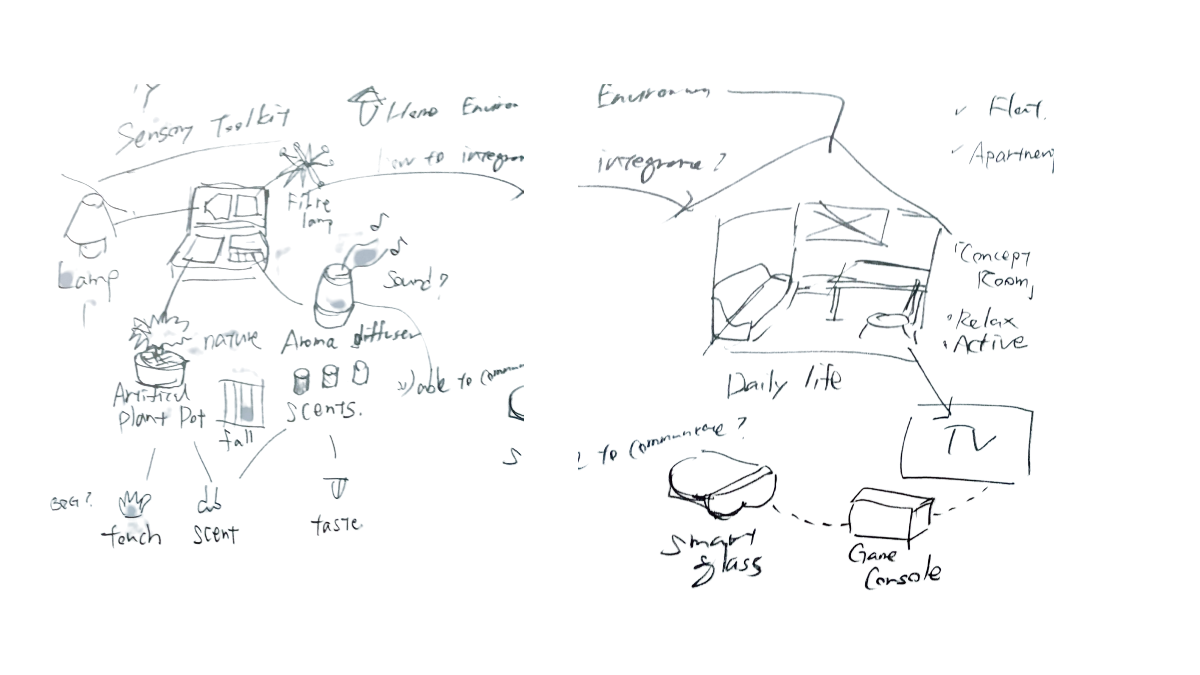 Sensory Toolkit
Home Environ
How to integran
Fibre
lamp
Lamp
Sound?
nature
Aroma diffuser
Artificial
Plant Pot
fall
scents.
able to commun
touch
scent
taste
Environ
integrane?
✓ Flat.
✓ Apartment
"Concept
Room,
• Relax
• Active
Daily life
TV
to communicate?
Smart
glass
Game
Console